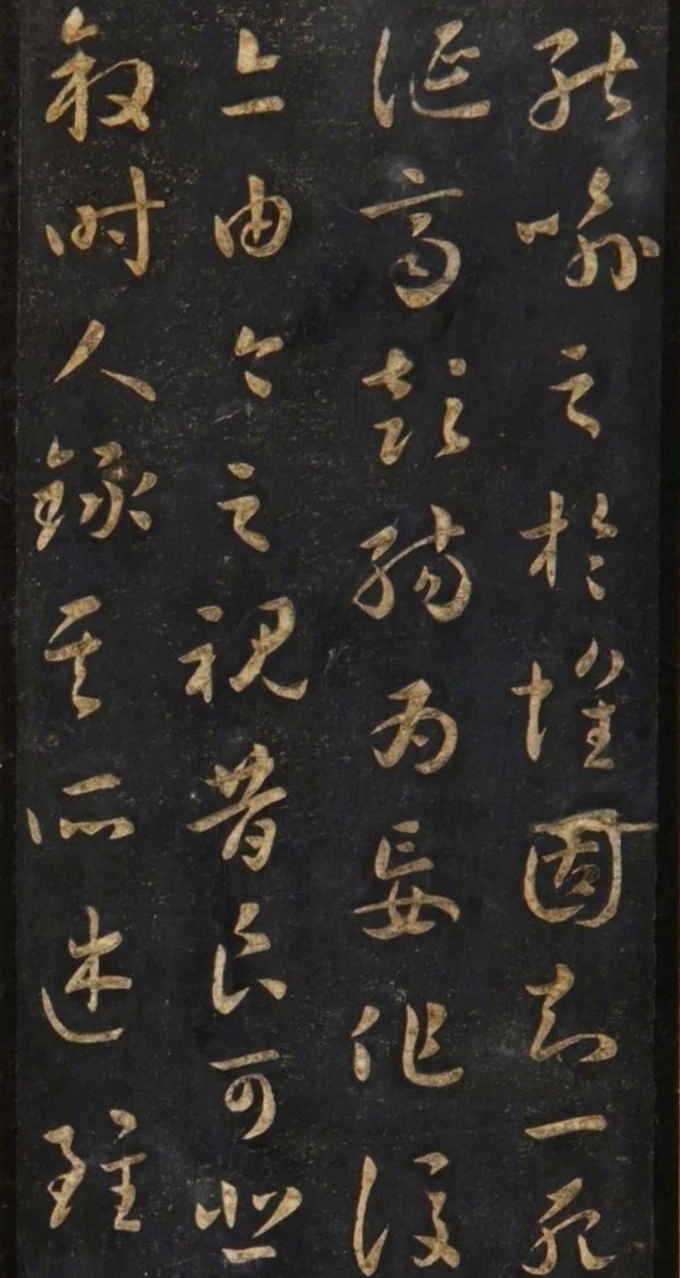 能喻之於懷固知一死
誕齊彭殤為妄作後
亦由今之視昔良可悲
敘時人錄其所述雖